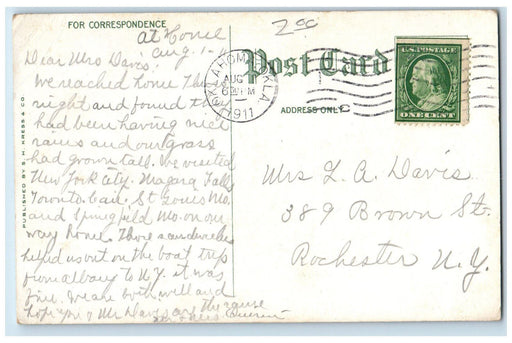 FOR CORRESPONDENCE
200
at Home
Aug. 1 - 11
Dear Mrs Davis:
We reached home Thurs
night and found they
had been having nice
rains and our grass
had grown tall. We visited
New York City. Niagara Falls
Toronto Can. St Louis Mo.
and Springfield Mo. on our
way home. Those sandwiches
helped us out on the boat trip
from albany to N.Y. it was
fine. We are both well and
hope you & Mr Davis are the same
PUBLISHED BY S. H. KRESS & CO.
Post Card
ADDRESS ONLY
OKLAHOMA OKLA
AUG
1911
U.S. POSTAGE
ONE CENT
Mrs L. A. Davis
389 Brown St.
Rochester N.Y.